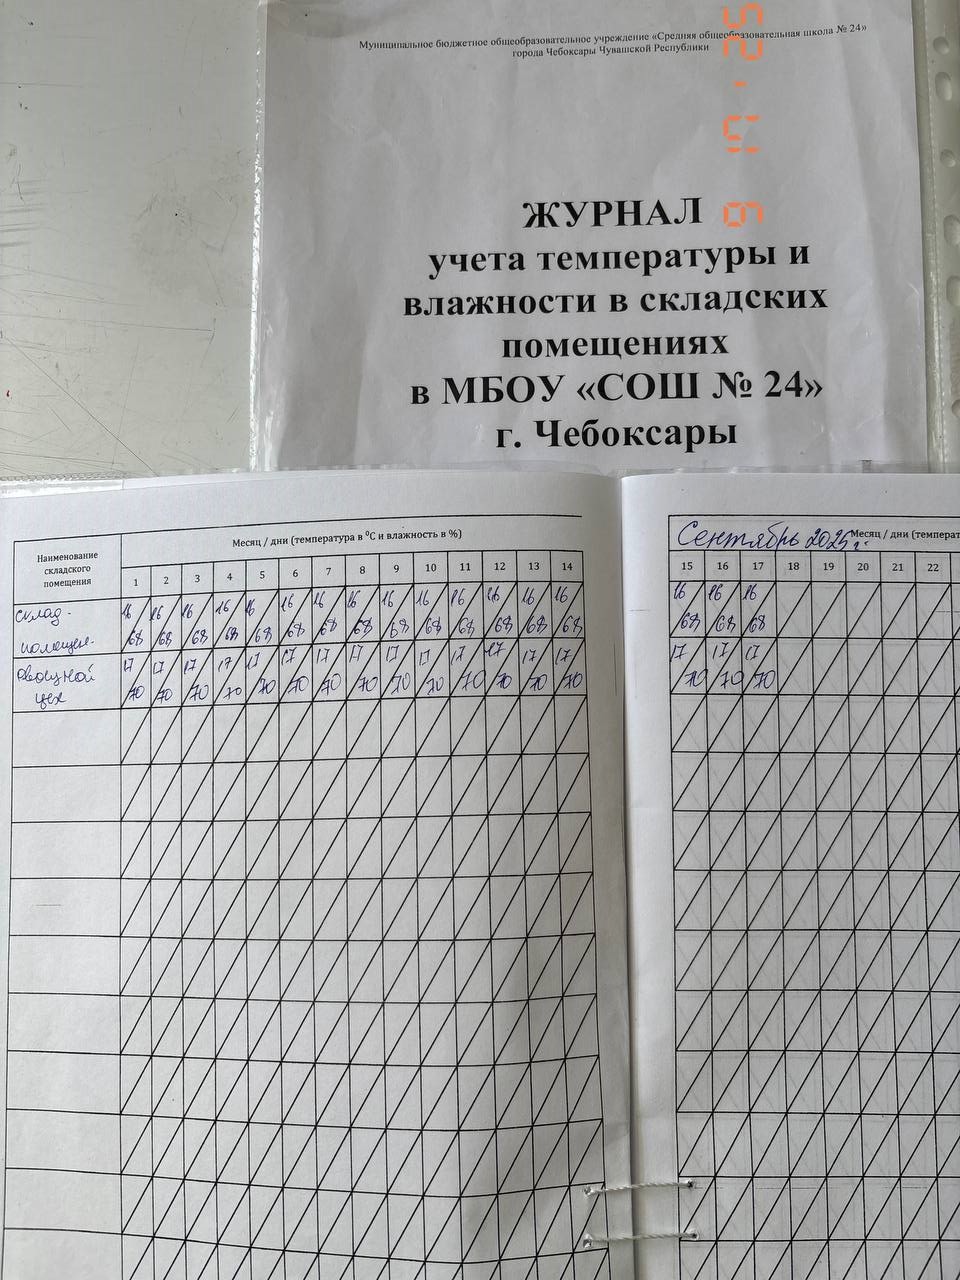 Муниципальное бюджетное общеобразовательное учреждение «Средняя общеобразовательная школа № 24»
города Чебоксары Чувашской Республики
ЖУРНАЛ
учета температуры и
влажности в складских
помещениях
в МБОУ «СОШ № 24»
г. Чебоксары
Наименование складского помещения
Месяц / дни (температура в ⁰С и влажность в %)
1 2 3 4 5 6 7 8 9 10 11 12 13 14
склад-
16 16 16 16 16 16 16 16 16 16 16 16 16 16
помещен-
68 68 68 68 68 68 68 68 68 68 68 68 68 68
овощной
17 17 17 17 17 17 17 17 17 17 17 17 17 17
цех
70 70 70 70 70 70 70 70 70 70 70 70 70 70
Сентябрь 2025 г.
Месяц / дни (температ
15 16 17 18 19 20 21 22
16 16 16
68 68 68
17 17 17
70 70 70